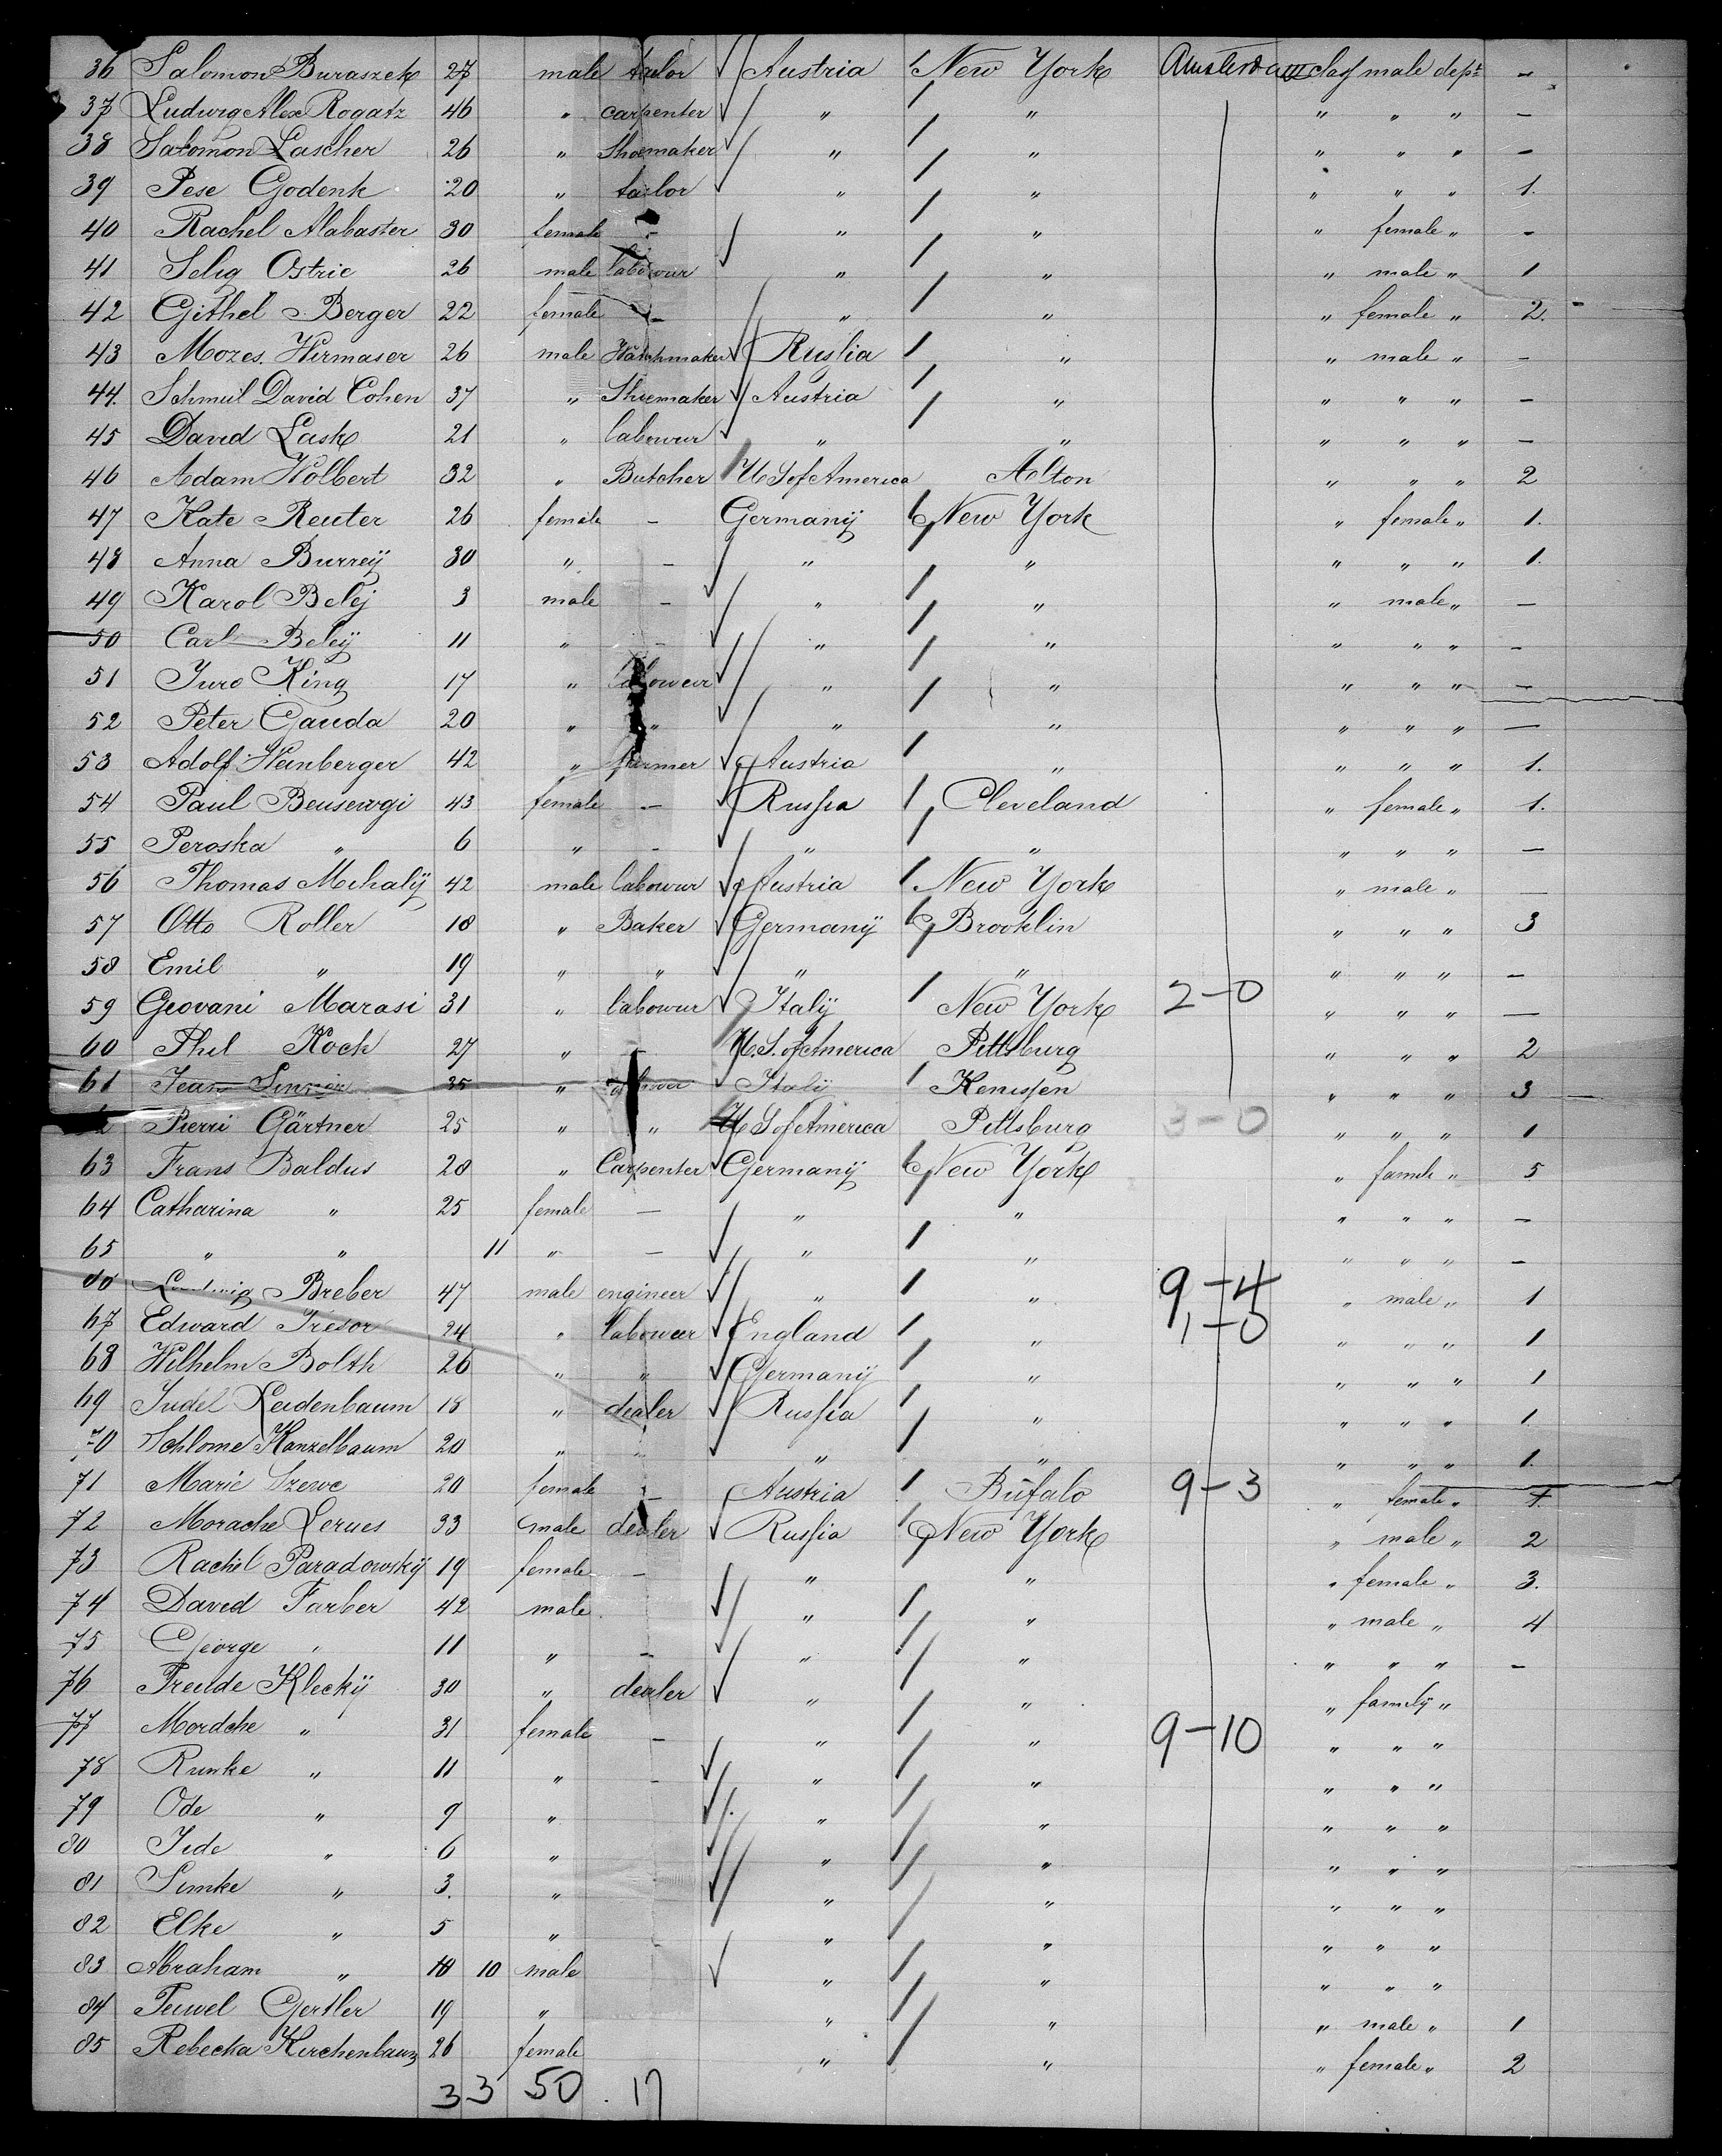 36 Salomon Buraszek 27 male tailor Austria New York Amsterdam clas male dept -
37 Ludwig Alex Rogatz 46 " carpenter " " " " " -
38 Salomon Lascher 26 " Shoemaker " " " " " -
39 Pese Godenk 20 " tailor " " " " " 1.
40 Rachel Alabaster 30 female - " " " female " -
41 Selig Ostrie 26 male labouur " " " male " 1
42 Githel Berger 22 female - " " " female " 2.
43 Mozes Wirmaser 26 male Watchmaker Russia " " male " -
44. Schmul David Cohen 37 " Shoemaker Austria " " " " -
45 David Lask 21 " labouur " " " " " -
46 Adam Wolbert 32 " Butcher U S of America Alton " " " 2
47 Kate Reuter 26 female - Germany New York " female " 1.
48 Anna Burreÿ 30 " - " " " " " 1.
49 Karol Belej 3 male - " " " male " -
50 Carl Beleÿ 11 " - " " " " " -
51 Juro King 17 " labouur " " " " " -
52 Peter Gauda 20 " " " " " " " -
53 Adolf Heinberger 42 " farmer Austria " " " " 1.
54 Paul Beusewgi 43 female - Russia Cleveland " female " 1.
55 Peroska " 6 " - " " " " " -
56 Thomas Mehalÿ 42 male labouur Austria New York " male " -
57 Otto Roller 18 " Baker Germany Brooklin " " " 3
58 Emil " 19 " " " " " " " -
59 Geovani Marasi 31 " labouur Italÿ New York 2-0 " " " -
60 Phil Koch 27 " - U.S. of America Pittsburg " " " 2
61 Jean 35 " Italÿ Kenissen " " " 3
62 Pierri Gärtner 25 " " U S of America Pittsburg 3-0 " " " 1
63 Frans Baldus 28 " Carpenter Germanÿ New York " famile " 5
64 Catharina " 25 female - " " " " " -
65 " " 11 " - " " " " " -
66 Ludwig Breber 47 male engineer " " 9-4 " male " 1
67 Edward Tresor 24 " labouur England " 1-0 " " " 1
68 Wilhelm Bolth 26 " " Germanÿ " " " " 1
69 Judel Leidenbaum 18 " dealer Russia " " " " 1.
70 Schlome Kanzelbaum 20 " " " " " " " 1.
71 Marie Szewc 20 female - Austria Bufalo 9-3 " female " 1.
72 Morache Lerues 33 male dealer Russia New York " male " 2
73 Rachel Paradowskÿ 19 female - " " " female " 3.
74 David Farber 42 male " " " male " 4
75 George " 11 " - " " " " " -
76 Freilde Kleckÿ 30 " dealer " " " familÿ "
77 Mordche " 31 female - " " 9-10 " " "
78 Runke " 11 " - " " " " "
79 Ode " 9 " " " " " "
80 Jede " 6 " " " " " "
81 Simke " 3. " " " " " "
82 Elke " 5 " " " " " "
83 Abraham " 10 10 male " " " " "
84 Teuwel Gertler 19 " " " " male " 1
85 Rebecka Kirchenbaum 26 female " " " female " 2
33 50 . 17